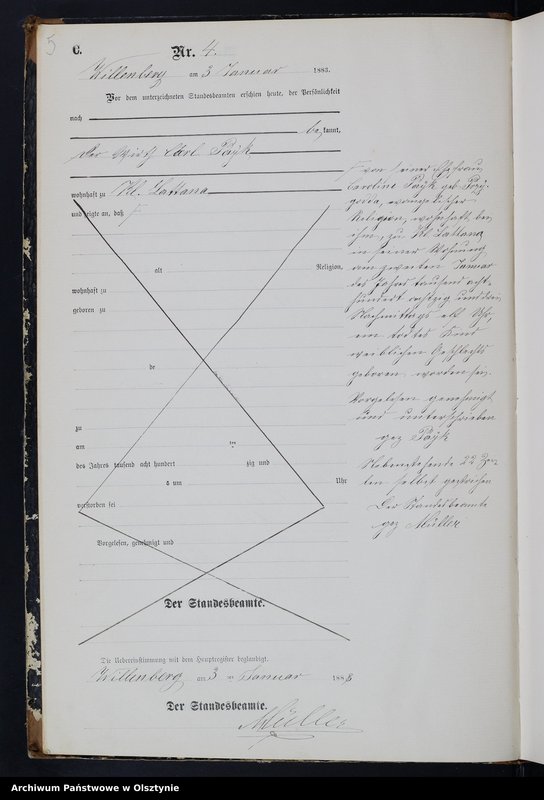 5
C.
Nr. 4.
Willenberg am 3 Januar 1883.
Vor dem unterzeichneten Standesbeamten erschien heute, der Persönlichkeit
nach
bekannt,
der Wirth Carl
wohnhaft zu Kl. Lattana
und zeigte an, daß
alt Religion,
wohnhaft zu
geboren zu
de
zu
am ten
des Jahres tausend acht hundert zig und
s um Uhr
verstorben sei
Vorgelesen, genehmigt und
Der Standesbeamte.
von seiner Ehefrau
Caroline geb.
evangelischer
Religion, wohnhaft bei
ihm, zu Kl. Lattana
in seiner Wohnung
am zweiten Januar
des Jahres tausend acht-
hundert achtzig und drei,
Nachmittags elf Uhr,
ein todtes Kind
weiblichen Geschlechts
geboren worden sei.
Vorgelesen genehmigt
und unterschrieben
gez
Nebenstehende 22 Zei-
len selbst gestrichen
Der Standesbeamte
gez Müller
Die Uebereinstimmung mit dem Hauptregister beglaubigt.
Willenberg am 3 ten Januar 1883
Der Standesbeamte.
Müller
Archiwum Państwowe w Olsztynie